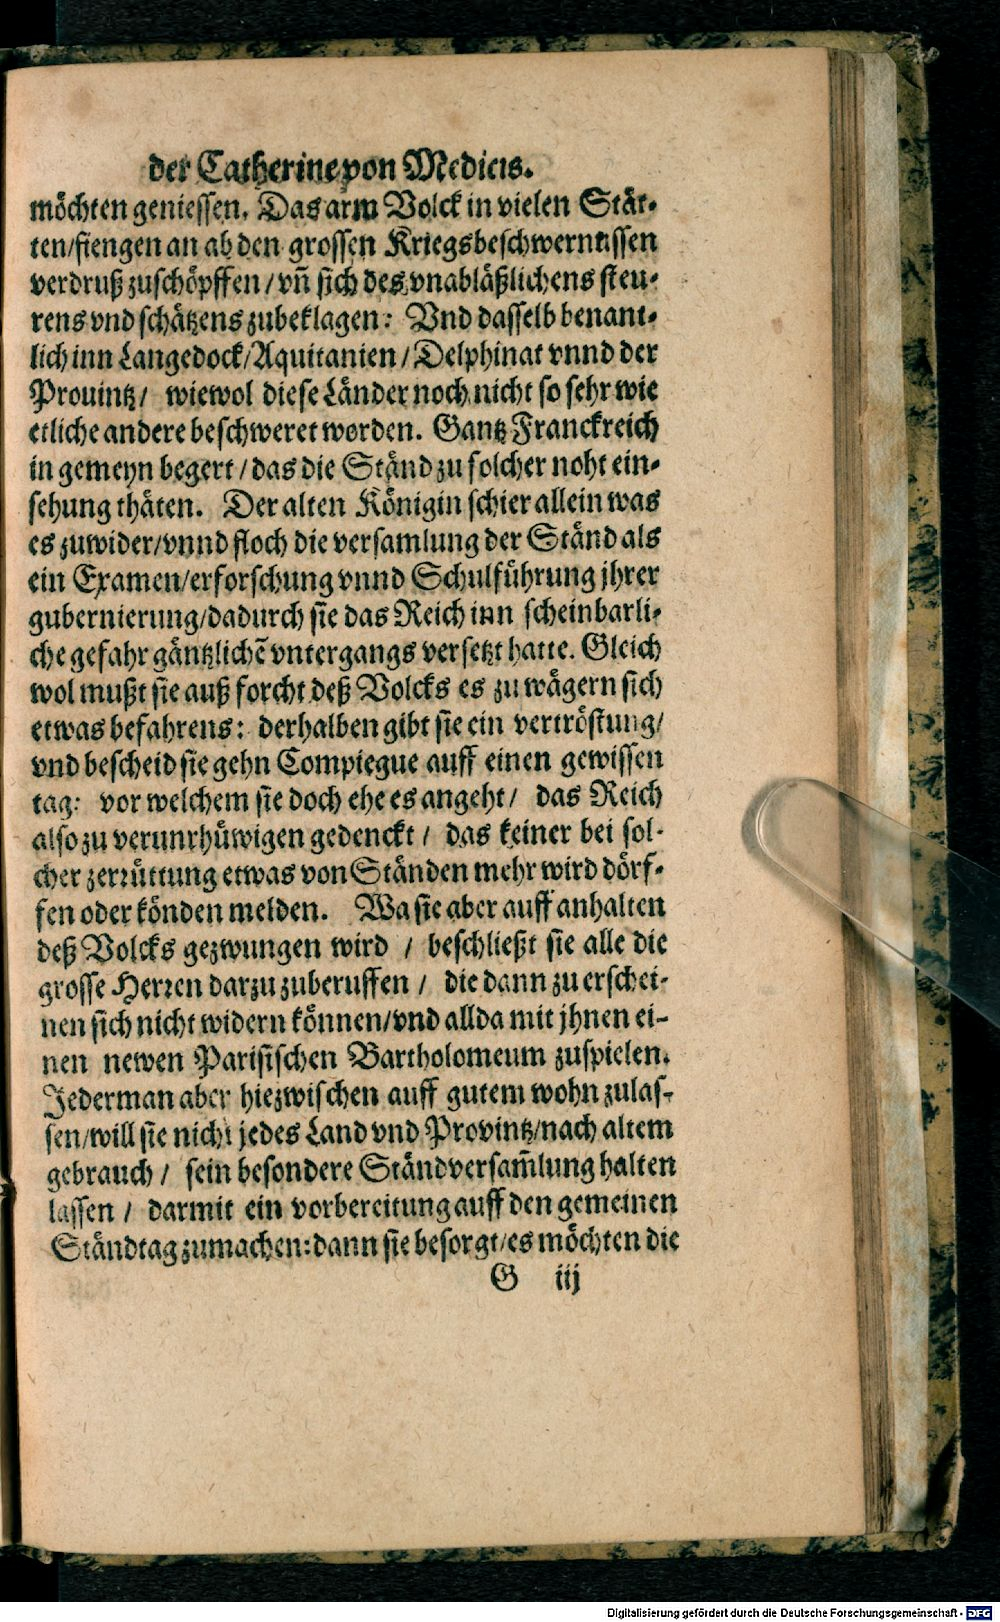 der Catherine von Medicis.
möchten geniessen. Das arm Volck in vielen Stät-
ten/fiengen an ab den grossen Kriegsbeschwernussen
verdruß zuschöpffen/vñ sich des vnabläßlichens steu-
rens vnd schätzens zubeklagen: Vnd dasselb benant-
lich inn Langedock/Aquitanien/Delphinat vnnd der
Prouintz/ wiewol diese Länder noch nicht so sehr wie
etliche andere beschweret worden. Gantz Franckreich
in gemeyn begert/das die Ständ zu solcher noht ein-
sehung thäten. Der alten Königin schier allein was
es zuwider/vnnd floch die versamlung der Ständ als
ein Examen/erforschung vnnd Schulführung jhrer
gubernierung/dadurch sie das Reich inn scheinbarli-
che gefahr gäntzlichẽ vntergangs versetzt hatte. Gleich
wol mußt sie auß forcht deß Volcks es zu wägern sich
etwas befahrens: derhalben gibt sie ein vertröstung/
vnd bescheid sie gehn Compiegue auff einen gewissen
tag: vor welchem sie doch ehe es angeht/ das Reich
also zu verunrhüwigen gedenckt/ das keiner bei sol-
cher zerrüttung etwas von Ständen mehr wird dörf-
fen oder könden melden. Wa sie aber auff anhalten
deß Volcks gezwungen wird / beschließt sie alle die
grosse Herren darzu zuberuffen / die dann zu erschei-
nen sich nicht widern können/vnd allda mit jhnen ei-
nen newen Parisischen Bartholomeum zuspielen.
Jederman aber hiezwischen auff gutem wohn zulas-
sen/will sie nicht jedes Land vnd Provintz/nach altem
gebrauch / sein besondere Ständversam̃lung halten
lassen / darmit ein vorbereitung auff den gemeinen
Ständtag zumachen: dann sie besorgt/es möchten die
G iij
Digitalisierung gefördert durch die Deutsche Forschungsgemeinschaft - DFG